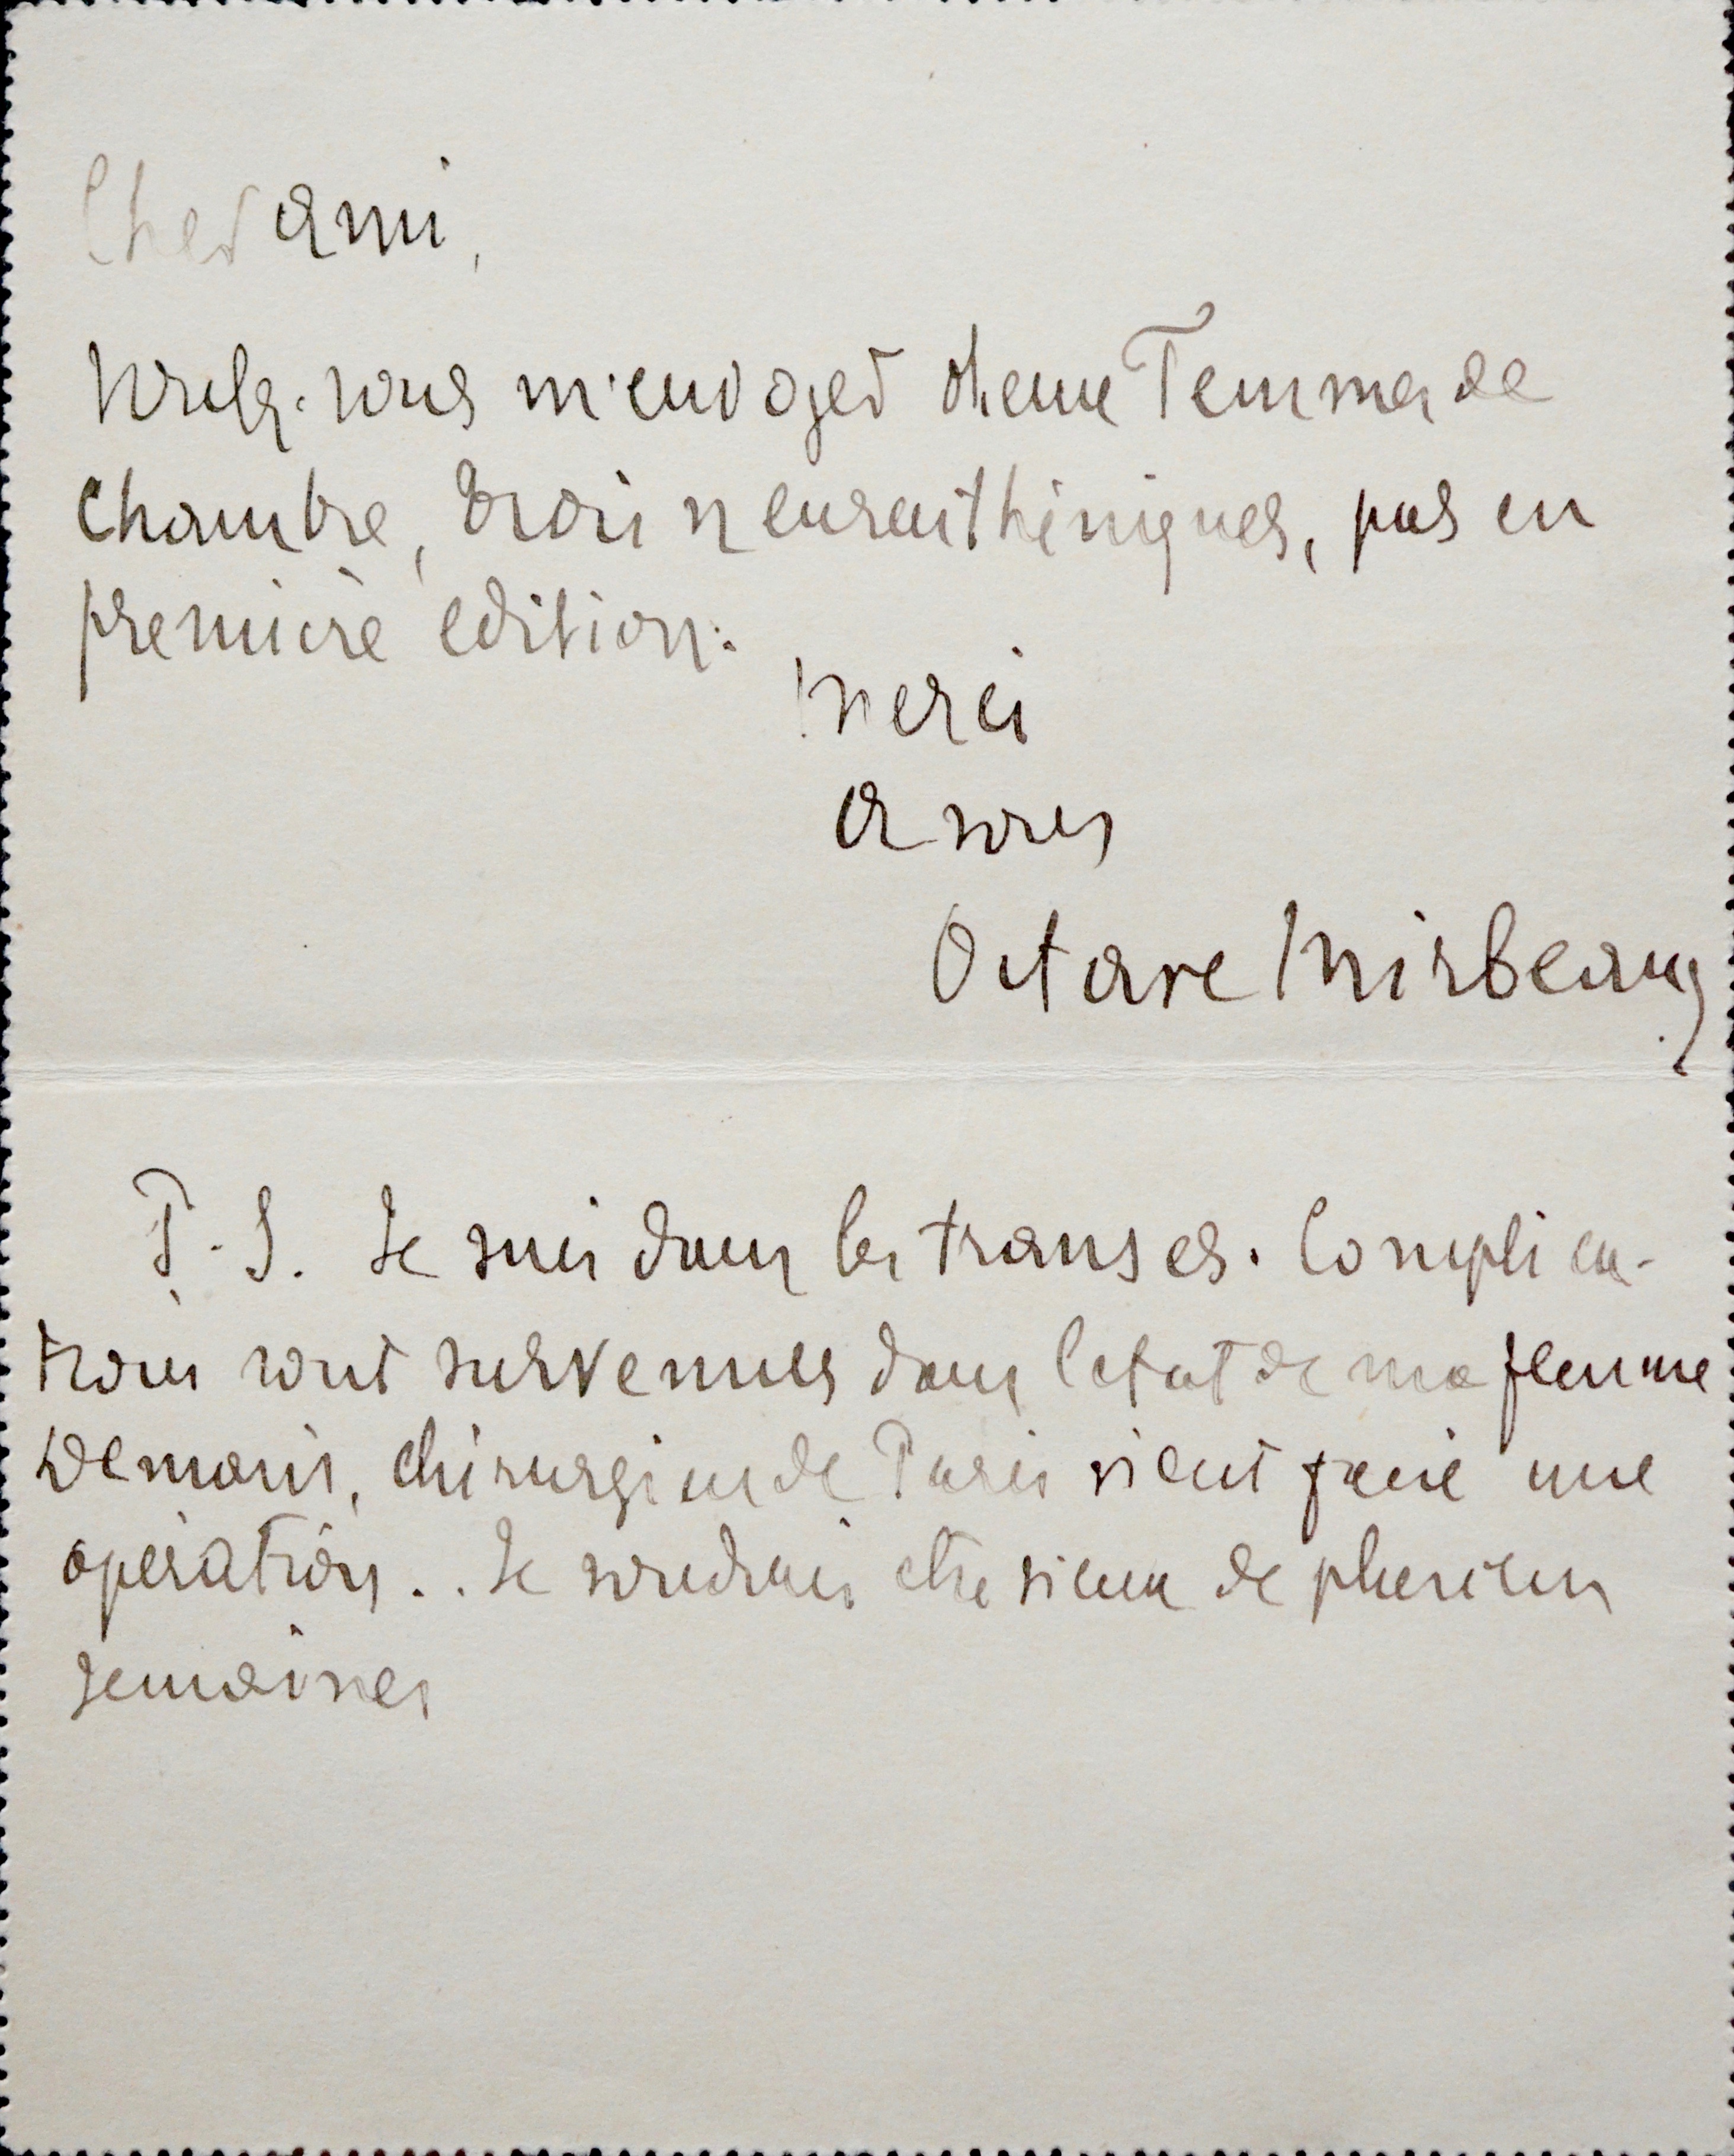 Cher ami,
Voulez-vous m'envoyer deux Femmes de
chambre, trois neurasthéniques, pas en
première édition.
Merci
A vous
Octave Mirbeau
P. S. Je suis dans les transes. Complica-
tions sont survenues dans l'état de ma femme
Demain, chirurgien de Paris vient faire une
opération.. Je voudrais être vieux de plusieurs
semaines